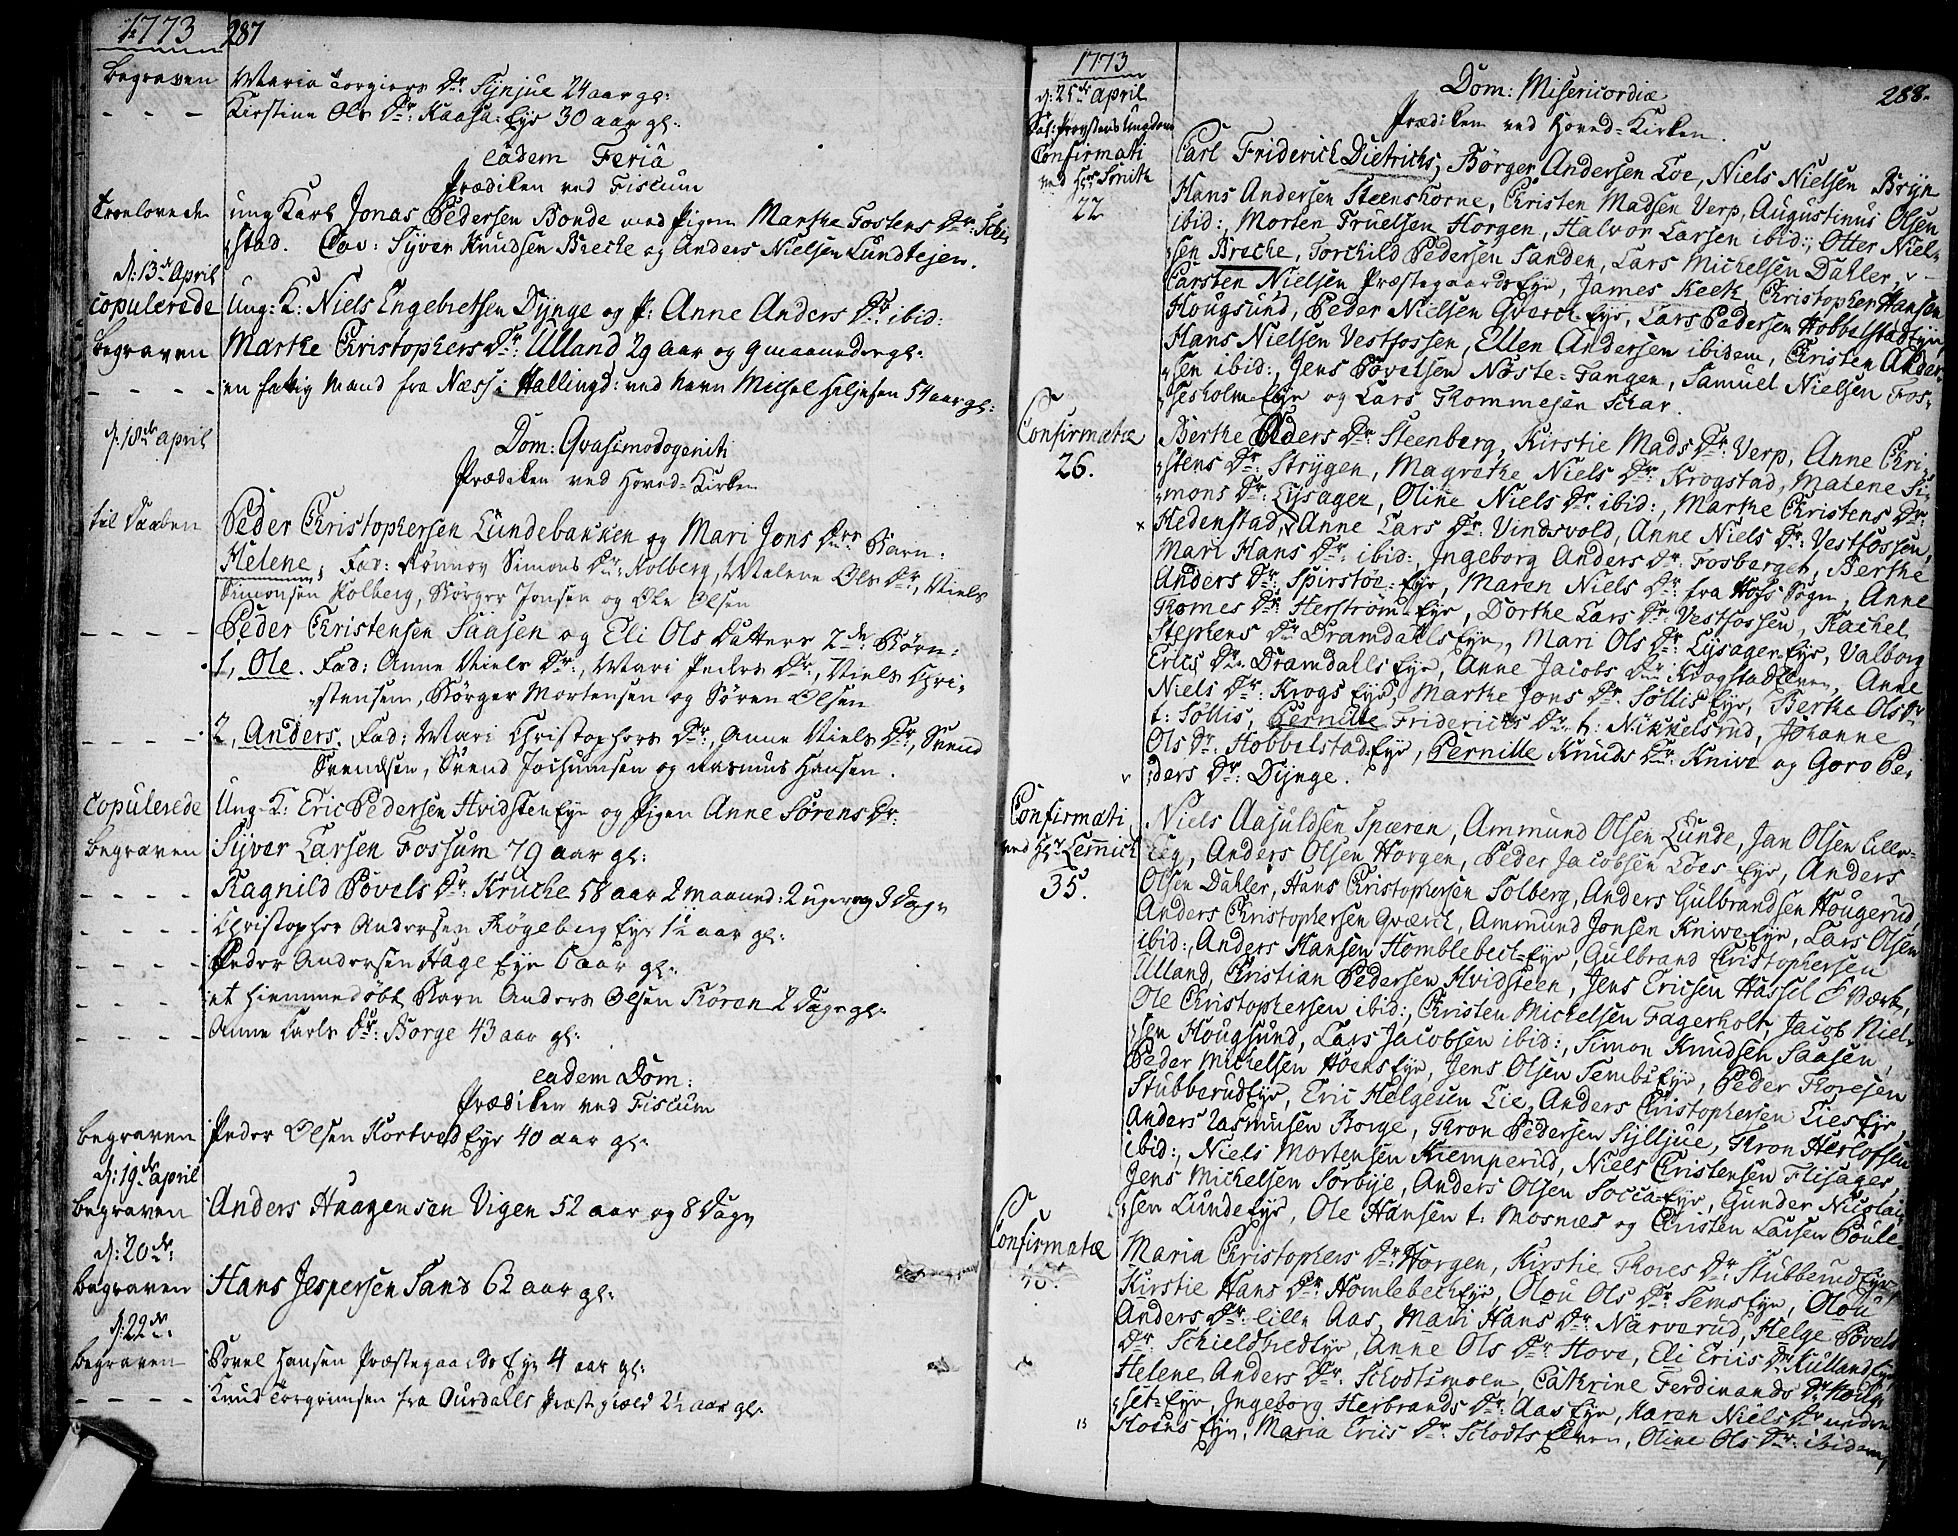 1773 287
begraven Maria Torgiers Dr: Synjue 24 aar gl:
- - - Kirstine Ols Dr: Kaasa-Eje 30 aar gl:
eadem Feriâ
Prædiken ved Fiscum
Troelovede ung Karl Jonas Pedersen Bonde med Pigen Marthe Tostens Dr: Schi-
stad. Cav: Syver Knudsen Breche og Anders Nielsen Lundtejen.
d: 13de April
copulerede Ung: K: Niels Engebretsen Dynge og P: Anne Anders Dr: ibid:
begraven Marthe Christophers Dr: Ulland 29 aar og 9 maaneder gl:
- - - - en fattig Mand fra Næss i Hallingd: ved navn Michel Heljesen 54 aar gl:
d: 18de April
Dom: Qvasimodogeniti
Prædiken ved Hoved-Kirken
til Daaben Peder Christophersen Lundebakken og Mari Jons Dtrs Barn:
Helene, Fad: Rønnov Simons Dr: Kolberg, Malene Ols Dr:, Niels
Simonsen Kolberg, Børger Jonsen og Ole Olsen
- - - - Peder Christensen Saasen og Eli Ols Datters 2de: Børn:
1, Ole. Fad: Anne Niels Dr:, Mari Peders Dr:, Niels Chri-
stensen, Børger Mortensen og Søren Olsen
- - - - 2, Anders. Fad: Mari Christophers Dr:, Anne Niels Dr:, Svend
Svendsen, Svend Jochumsen og Rasmus Hansen.
Copulerede Ung-K: Eric Pedersen Hvidsten Eje og Pigen Anne Sørens Dr:
begraven Syver Larsen Fossum 79 aar gl:
- - - - Ragnild Povels Dr: Kruche 58 aar 2 maaned: 2 uger og 3 Dage
- - - - Christopher Andersen Røgeberg Eje 1½ aar gl:
- - - - Peder Andersen Hage Eje 6 aar gl:
- - - - et hiemmedøbt Barn Anders Olsen Røren 2 Dage gl:
- - - - Anne Carls Dr: Borge 43 aar gl:
eadem Dom:
Prædiken ved Fiscum
begraven Peder Olsen Kortveld Eje 40 aar gl:
d: 19de April
begraven Anders Haagensen Vigen 52 aar og 8 Dage
d: 20de:
begraven Hans Jespersen Sand 62 aar gl:
d: 22de:
begraven Povel Hansen Præstegaards Eje 4 aar gl:
- - - - Knud Torgrimsen fra Aurdals Præstegield 21 aar gl:
1773
288.
d: 25de April
Dom: Misericordiæ
Prædiken ved Hoved-Kirken.
Sal: Provstens Ungdom
Confirmati
ved Hr Smith
22
Carl Friderich Dietrichs, Børger Andersen Loe, Niels Nielsen Bryn
Hans Andersen Steenshorne, Christen Madsen Verp, Augustinus Olsen
ibid:, Morten Truelsen Horgen, Halvor Larsen ibid:, Otter Niel-
sen Breche, Torchild Pedersen Sanden, Lars Michelsen Dahler,
Carsten Nielsen Præstegaards Eje, James Keek, Christopher Hansen
Hougsund, Peder Nielsen Qverch-Eje, Lars Pedersen Hobbelstad Eje,
Hans Nielsen Vestfossen, Ellen Andersen ibidem, Christen Ander-
sen ibid:, Jens Povelsen Nøste-Tangen, Samuel Nielsen Fos-
sesholm-Eje og Lars Thommesen Schar.
Confirmatæ
26.
Berthe Peders Dr: Steenberg, Kirstie Mads Dr: Verp, Anne Chri-
stens Dr: Strygen, Magrethe Niels Dr: Krogstad, Malene Si-
mons Dr: Lysager, Oline Niels Dr: ibid:, Marthe Christens Dr:
Hedenstad, Anne Lars Dr: Vindsvold, Anne Niels Dr: Vestfossen,
Mari Hans Dr: ibid:, Ingeborg Anders Dr: Fosberget, Berthe
Anders Dr: Spirstøe-Eje, Maren Niels Dr: fra Hofs Sogn, Anne
Thomes Dr: Herstrøm-Eje, Dorthe Lars Dr: Vestfossen, Rachel
Stephens Dr: Dramdahls Eje, Mari Ols Dr: Lysager-Eje, Valborg
Erics Dr: Dramdalls Eje, Anne Jacobs Dr: Krogstad Elven, Anne
Niels Dr: Krogs Eje, Marthe Jons Dr: Sollis Eje, Berthe Ols Dr:
t: Søllis, Pernille Friderichs Dr: t: Nikkelsrud, Johanne
Ols Dr: Hobbelstad-Eje, Pernille Knuds Dr: Knive og Goro Pe-
ders Dr: Dynge.
Confirmati
ved Hr Lemmich
35.
Niels Aasuldsen Spæren, Ammund Olsen Lunde, Jan Olsen Lille-
Eeg, Anders Olsen Horgen, Peder Jacobsen Loes Eje, Anders
Olsen Dahler, Hans Christophersen Solberg, Anders Gulbrandsen Hougerud,
Anders Christophersen Qværch, Ammund Jonsen Knive-Eje, Lars Olsen
ibid:, Anders Hansen Homblebech-Eje, Gulbrand Christophersen
Ulland, Christian Pedersen Hvidsteen, Jens Ericsen Hassel Værk,
Ole Christophersen ibid:, Christen Michelsen Fagerholt, Jacob Niel-
sen Hougsund, Lars Jacobsen ibid:, Simon Knudsen Saasen,
Peder Michelsen Hoens Eje, Jens Olsen Sembs Eje, Peder Thoresen
Stubberud Eje, Eric Helgesen Lie, Anders Christophersen Lies Eje,
Anders Rasmusen Borge, Thron Pedersen Sylljue, Thron Herlofsen
ibid:, Niels Mortensen Kiemperud, Niels Christensen Flisager,
Jens Michelsen Sorbye, Anders Olsen Socca-Eje, Gunder Nicolai-
sen Lunde Eje, Ole Hansen t: Mosnes og Christen Larsen Poule-
Confirmatæ
Maria Christophers Dr: Horgen, Kirstie Thores Dr: Stubberud Eje,
Kirstie Hans Dr: Homlebech Eje, Olou Ols Dr: Sems Eje, Olou
Anders Dr: Lille Aas, Mari Hans Dr: Narverud, Helge Povels
Dr: Schieldhed Eje, Anne Ols Dr: Hove, Eli Erics Dr: Rulland Eje
Helene Anders Dr: Schodtsmoen, Cathrine Ferdinands Dr: Houg-
set-Eje, Ingeborg Herbrands Dr: Aas Eje, Karen Niels Dr: nedre
Hoens Eje, Maria Erics Dr: Schodts Elven, Oline Ols Dr: ibidem,